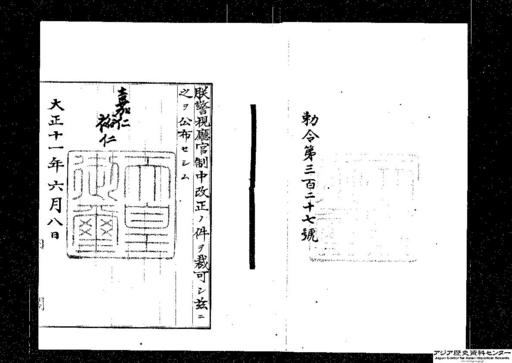 勅令第三百二十七號
朕警視廳官制中改正ノ件ヲ裁可シ茲ニ
之ヲ公布セシム
嘉仁
裕仁
天皇御璽
大正十一年六月八日
アジア歴史資料センター
Japan Center for Asian Historical Records